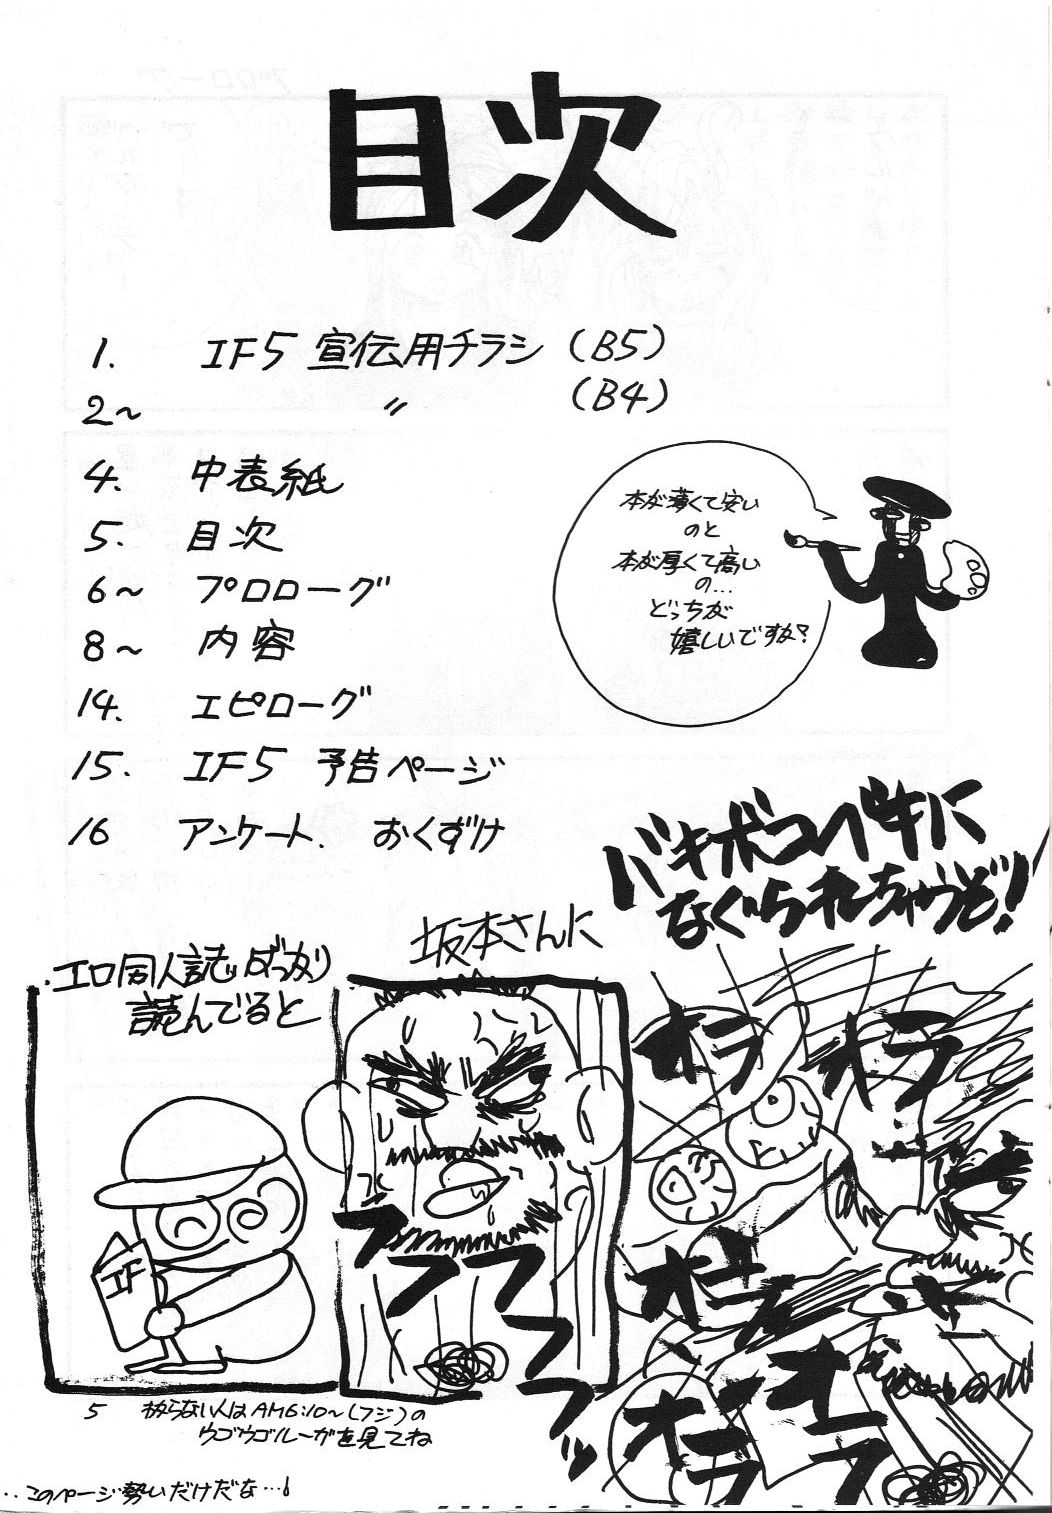 目次
1. IF5 宣伝用チラシ (B5)
2~ 〃 (B4)
4. 中表紙
5. 目次
6~ プロローグ
8~ 内容
14. エピローグ
15. IF5 予告ページ
16 アンケート. おくずけ
本が薄くて安い
のと
本が厚くて高い
の…
どっちが
嬉しいですか?
エロ同人誌ばっかり
読んでると
IF
坂本さんに
フフフフフフッ
バキボコベキに
なぐられちゃうぞ!
オラ
オラ
オラ
オラ
オラ
5
わからない人はAM6:10~(フジ)の
ウゴウゴルーガを見てね
..このページ勢いだけだな…!